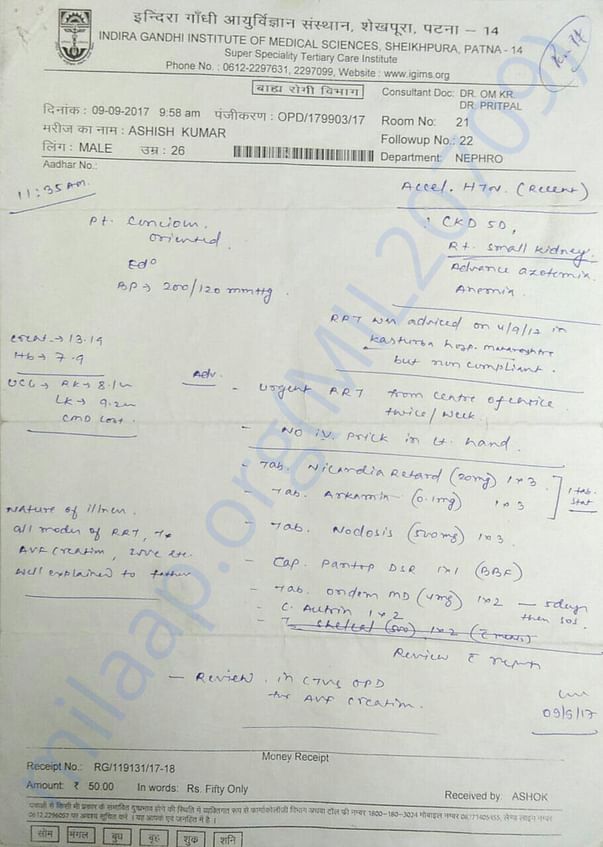 इन्दिरा गाँधी आयुर्विज्ञान संस्थान, शेखपूरा, पटना – 14
INDIRA GANDHI INSTITUTE OF MEDICAL SCIENCES, SHEIKHPURA, PATNA - 14
Super Speciality Tertiary Care Institute
Phone No. : 0612-2297631, 2297099, Website : www.igims.org
बाह्य रोगी विभाग
Consultant Doc: DR. OM KR.
DR. PRITPAL
दिनांक : 09-09-2017 9:58 am पंजीकरण : OPD/179903/17
Room No: 21
मरीज का नाम : ASHISH KUMAR
Followup No.: 22
लिंग : MALE उम्र : 26
Department: NEPHRO
Aadhar No.:
11:35 Am.
Accel. HTN. (Recent)
: CKD 5D,
Rt. small kidney.
Advance azotemia
Anemia.
Pt. Conciou.
oriented.
Ed°
BP → 200/120 mmHg.
RRT was adviced on 4/9/17 in
Kasturba hosp. Maharashtra
but non compliant.
creat → 13.19
Hb → 7.9
RK → 8.1
LK → 9.2
CMD lost.
Adv.
- Urgent RRT from centre of choice
twice/week.
- No iv. prick in Lt. hand.
- Tab. Nicardia Retard (20mg) 1x3
- Tab. Arkamin (0.1mg) 1x3
1 tab. stat
- Tab. Nodosis (500mg) 1x3.
- Cap. Pantop DSR 1x1 (BBF)
- Tab. ondem MD (4mg) 1x2 — 5days
then sos.
- C. Autrin 1x2
- T. Shelcal (500) 1x2
Nature of illness.
all modes of RRT, Tx
AVF creation,
well explained to father
Review c̄ report
- Review. in CTVS OPD
for AVF creation.
09/9/17
Money Receipt
Receipt No.: RG/119131/17-18
Amount: ₹ 50.00 In words: Rs. Fifty Only
Received by: ASHOK
दवाओं से किसी भी प्रकार के संभावित दुष्प्रभाव होने की स्थिति में व्यक्तिगत रूप से फार्माकोलॉजी विभाग अथवा टॉल फ्री नम्बर 1800-180-3024 मोबाइल नम्बर
0612 2296057 पर अवश्य सूचित करें । यह आपके एवं जनहित में है ।
सोम मंगल बुध बृह शुक्र शनि
milaap.org(MIL207709)